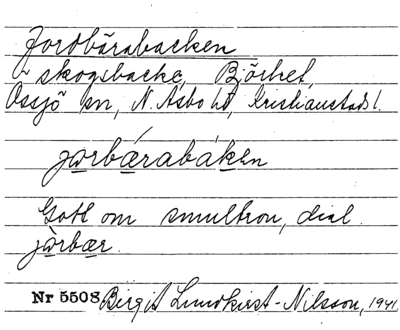 Jordbärabacken
skogsbacke, Björket,
Össjö sn, N. Åsbo hd, Kristianstads l.
jo̲rbǽ̲rabák̲en
Gott om smultron, dial.
jò̲rbæ̲r.
Nr 5508 Birgit Lundkvist-Nilsson, 1941